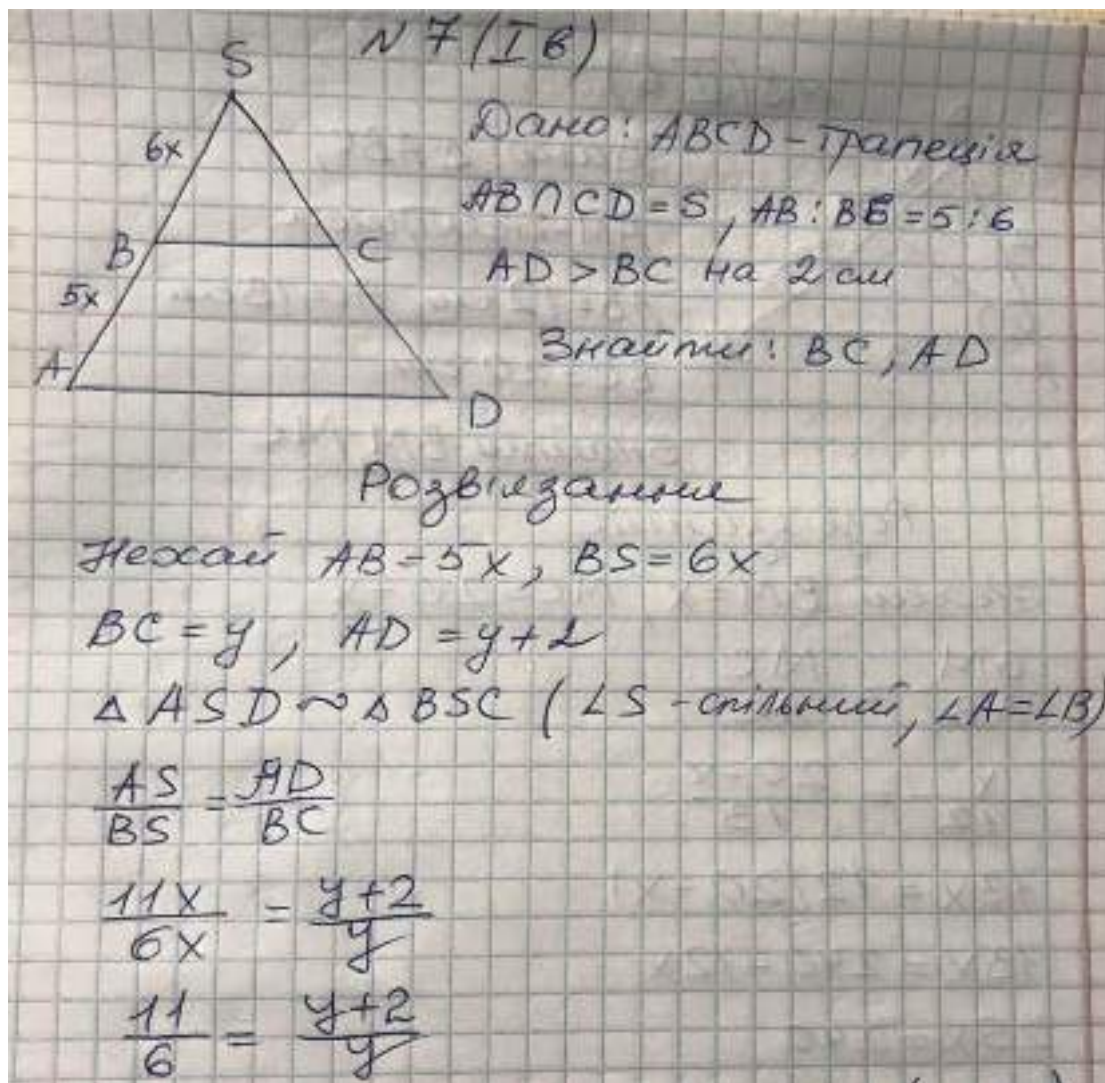 N 7 (I в)
S
6x
B
C
5x
A
D
Дано: ABCD - трапеція
AB ∩ CD = S, AB : BS = 5 : 6
AD > BC на 2 см
Знайти: BC, AD
Розв'язання
Нехай AB = 5x, BS = 6x
BC = y, AD = y + 2
Δ ASD ~ Δ BSC (∠S - спільний, ∠A = ∠B)
AS/BS = AD/BC
11x/6x = y+2/y
11/6 = y+2/y